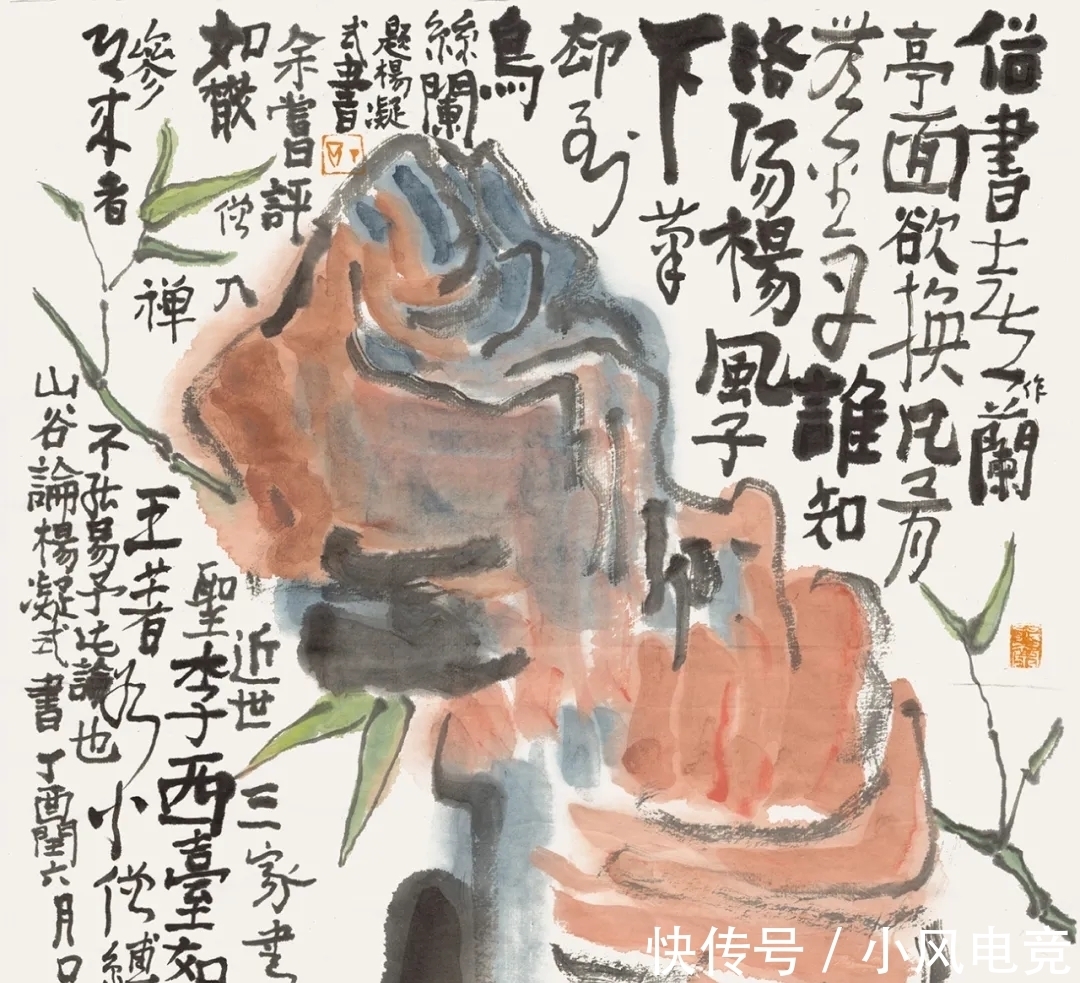 俗書喜作蘭
亭面欲換凡骨
無金丹誰知
洛陽楊風子
下筆
却到
烏
絲闌
題楊凝
式書
余嘗評
近世三家書
如散僧入
聖李西臺如
參禅
王著如小僧縛
恐来者
不能易予此論也
山谷論楊凝式書丁酉閏六月
快传号 / 小风电竞